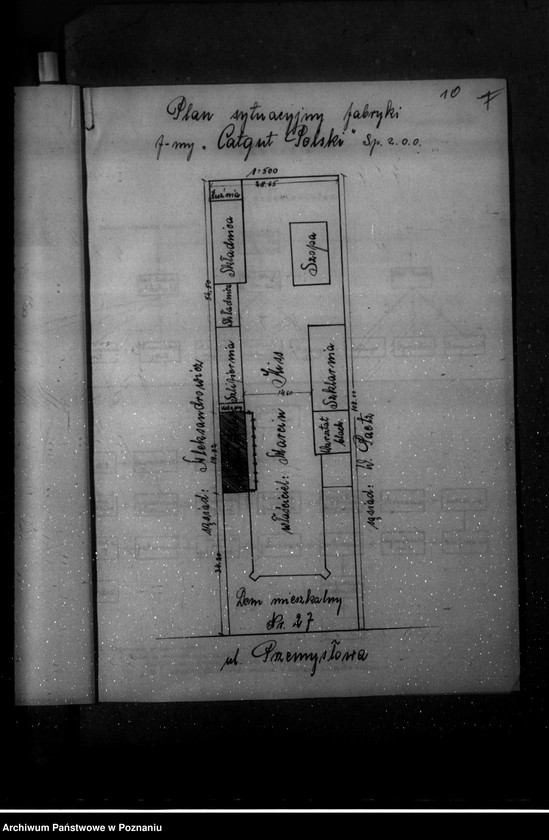 10 7
Plan sytuacyjny fabryki
f-my. "Catgut Polski" Sp. z.o.o.
1:500
28.65
Kuźnia
Składnica
Szopa
54.50
Składnica
Szlifiernia
Szklarnia
Kiss
14.60
102.00
Warsztat
blach.
10.02
sąsiad: Aleksandrowicz
właściciel: Marcin
sąsiad: W. Paetz
34.20
Dom mieszkalny
Nr. 27
ul. Przemysłowa
Archiwum Państwowe w Poznaniu